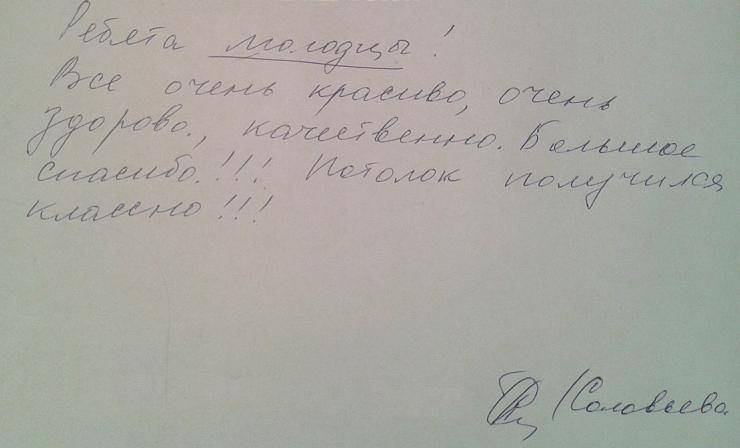 Ребята молодцы!
Все очень красиво, очень
здорово., качественно. Большое
спасибо.!!! Потолок получился
классно!!!
(Соловьева